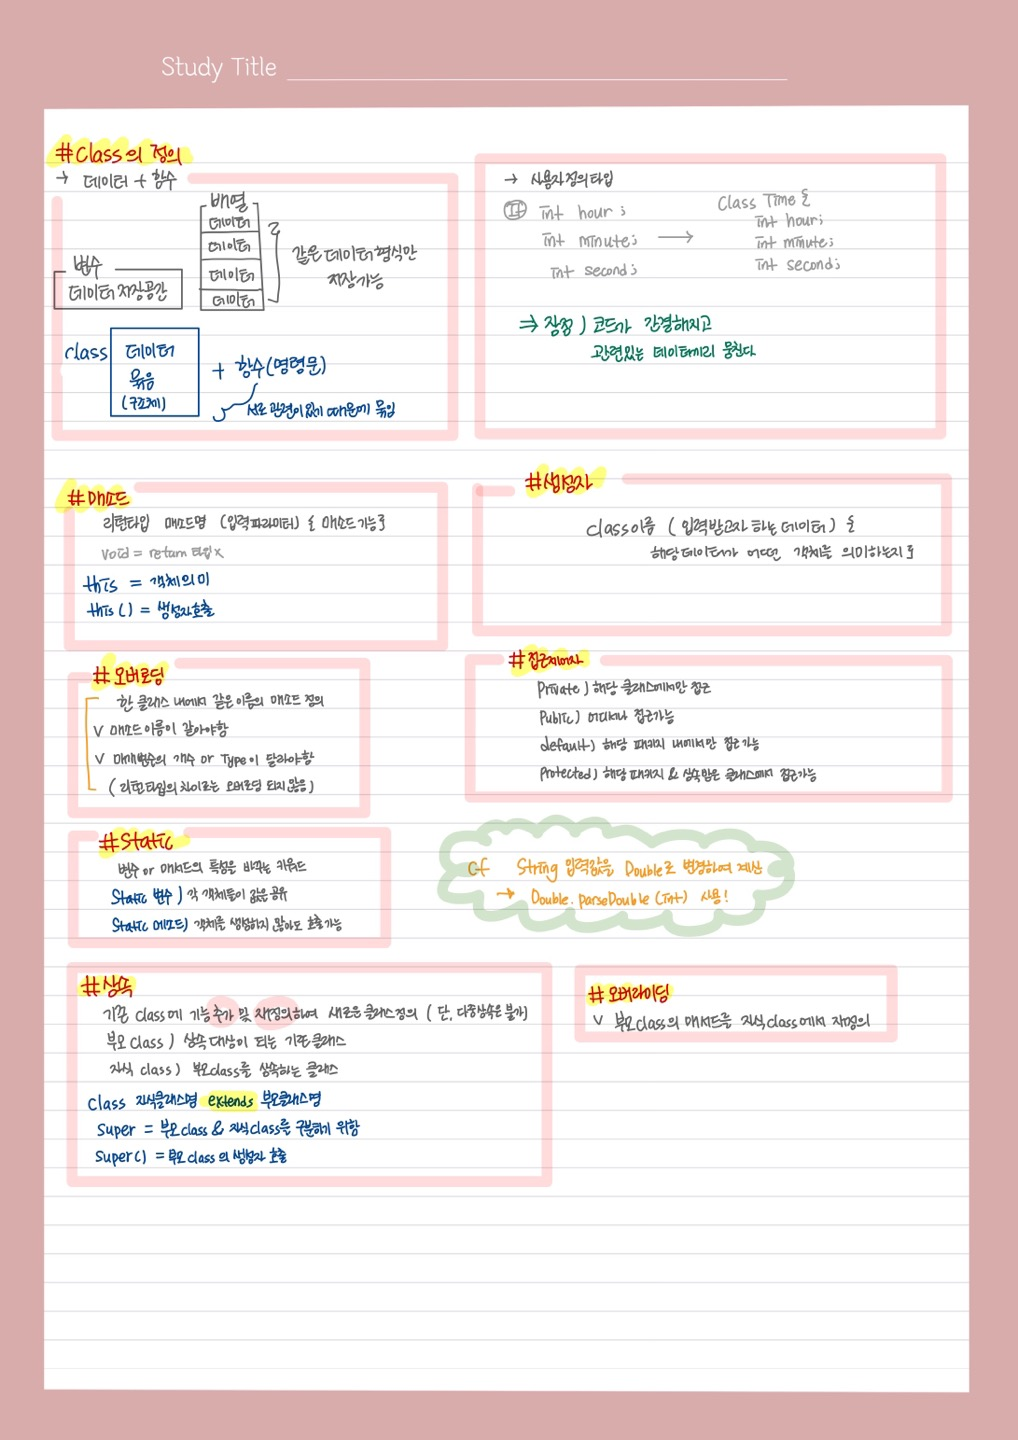 Study Title
#Class의 정의
→ 데이터 + 함수
배열
데이터
데이터
데이터
데이터
같은 데이터 형식만
저장가능
변수
데이터 저장공간
class
데이터
묶음
(구조체)
+ 함수(명령문)
서로 관련이 있기 때문에 묶임
→ 사용자 정의 타입
If int hour ;
int minute;
int second;
→
Class Time {
int hour;
int minute;
int second;
⇒ 장점 ) 코드가 간결해지고
관련있는 데이터끼리 뭉친다
#매소드
리턴타입 매소드명 (입력파라미터) { 매소드기능 }
void = return 타입 x
this = 객체의미
this ( ) = 생성자호출
#생성자
class이름 ( 입력받고자 하는 데이터 ) {
해당데이터가 어떤 객체를 의미하는지 }
#오버로딩
한 클래스 내에서 같은 이름의 매소드 정의
v 매소드 이름이 같아야함
v 매개변수의 개수 or Type이 달라야함
( 리턴타입의 차이로는 오버로딩 되지 않음 )
#접근제어자
Private ) 해당 클래스에서만 접근
Public ) 어디서나 접근가능
default ) 해당 패키지 내에서만 접근 가능
Protected ) 해당 패키지 & 상속받은 클래스에서 접근가능
#Static
변수 or 매서드의 특성을 바꾸는 키워드
Static 변수 ) 각 객체들이 값을 공유
Static 메소드) 객체를 생성하지 않아도 호출가능
cf String 입력값을 Double로 변경하여 계산
→ Double. parseDouble (Int) 사용!
#상속
기존 class에 기능 추가 및 재정의하여 새로운 클래스 정의 ( 단, 다중상속은 불가)
부모 class ) 상속 대상이 되는 기존 클래스
자식 class ) 부모class를 상속하는 클래스
class 자식클래스명 extends 부모클래스명
Super = 부모class & 자식class를 구분하기 위함
Super( ) = 부모class의 생성자 호출
#오버라이딩
v 부모class의 매서드를 자식class에서 재정의